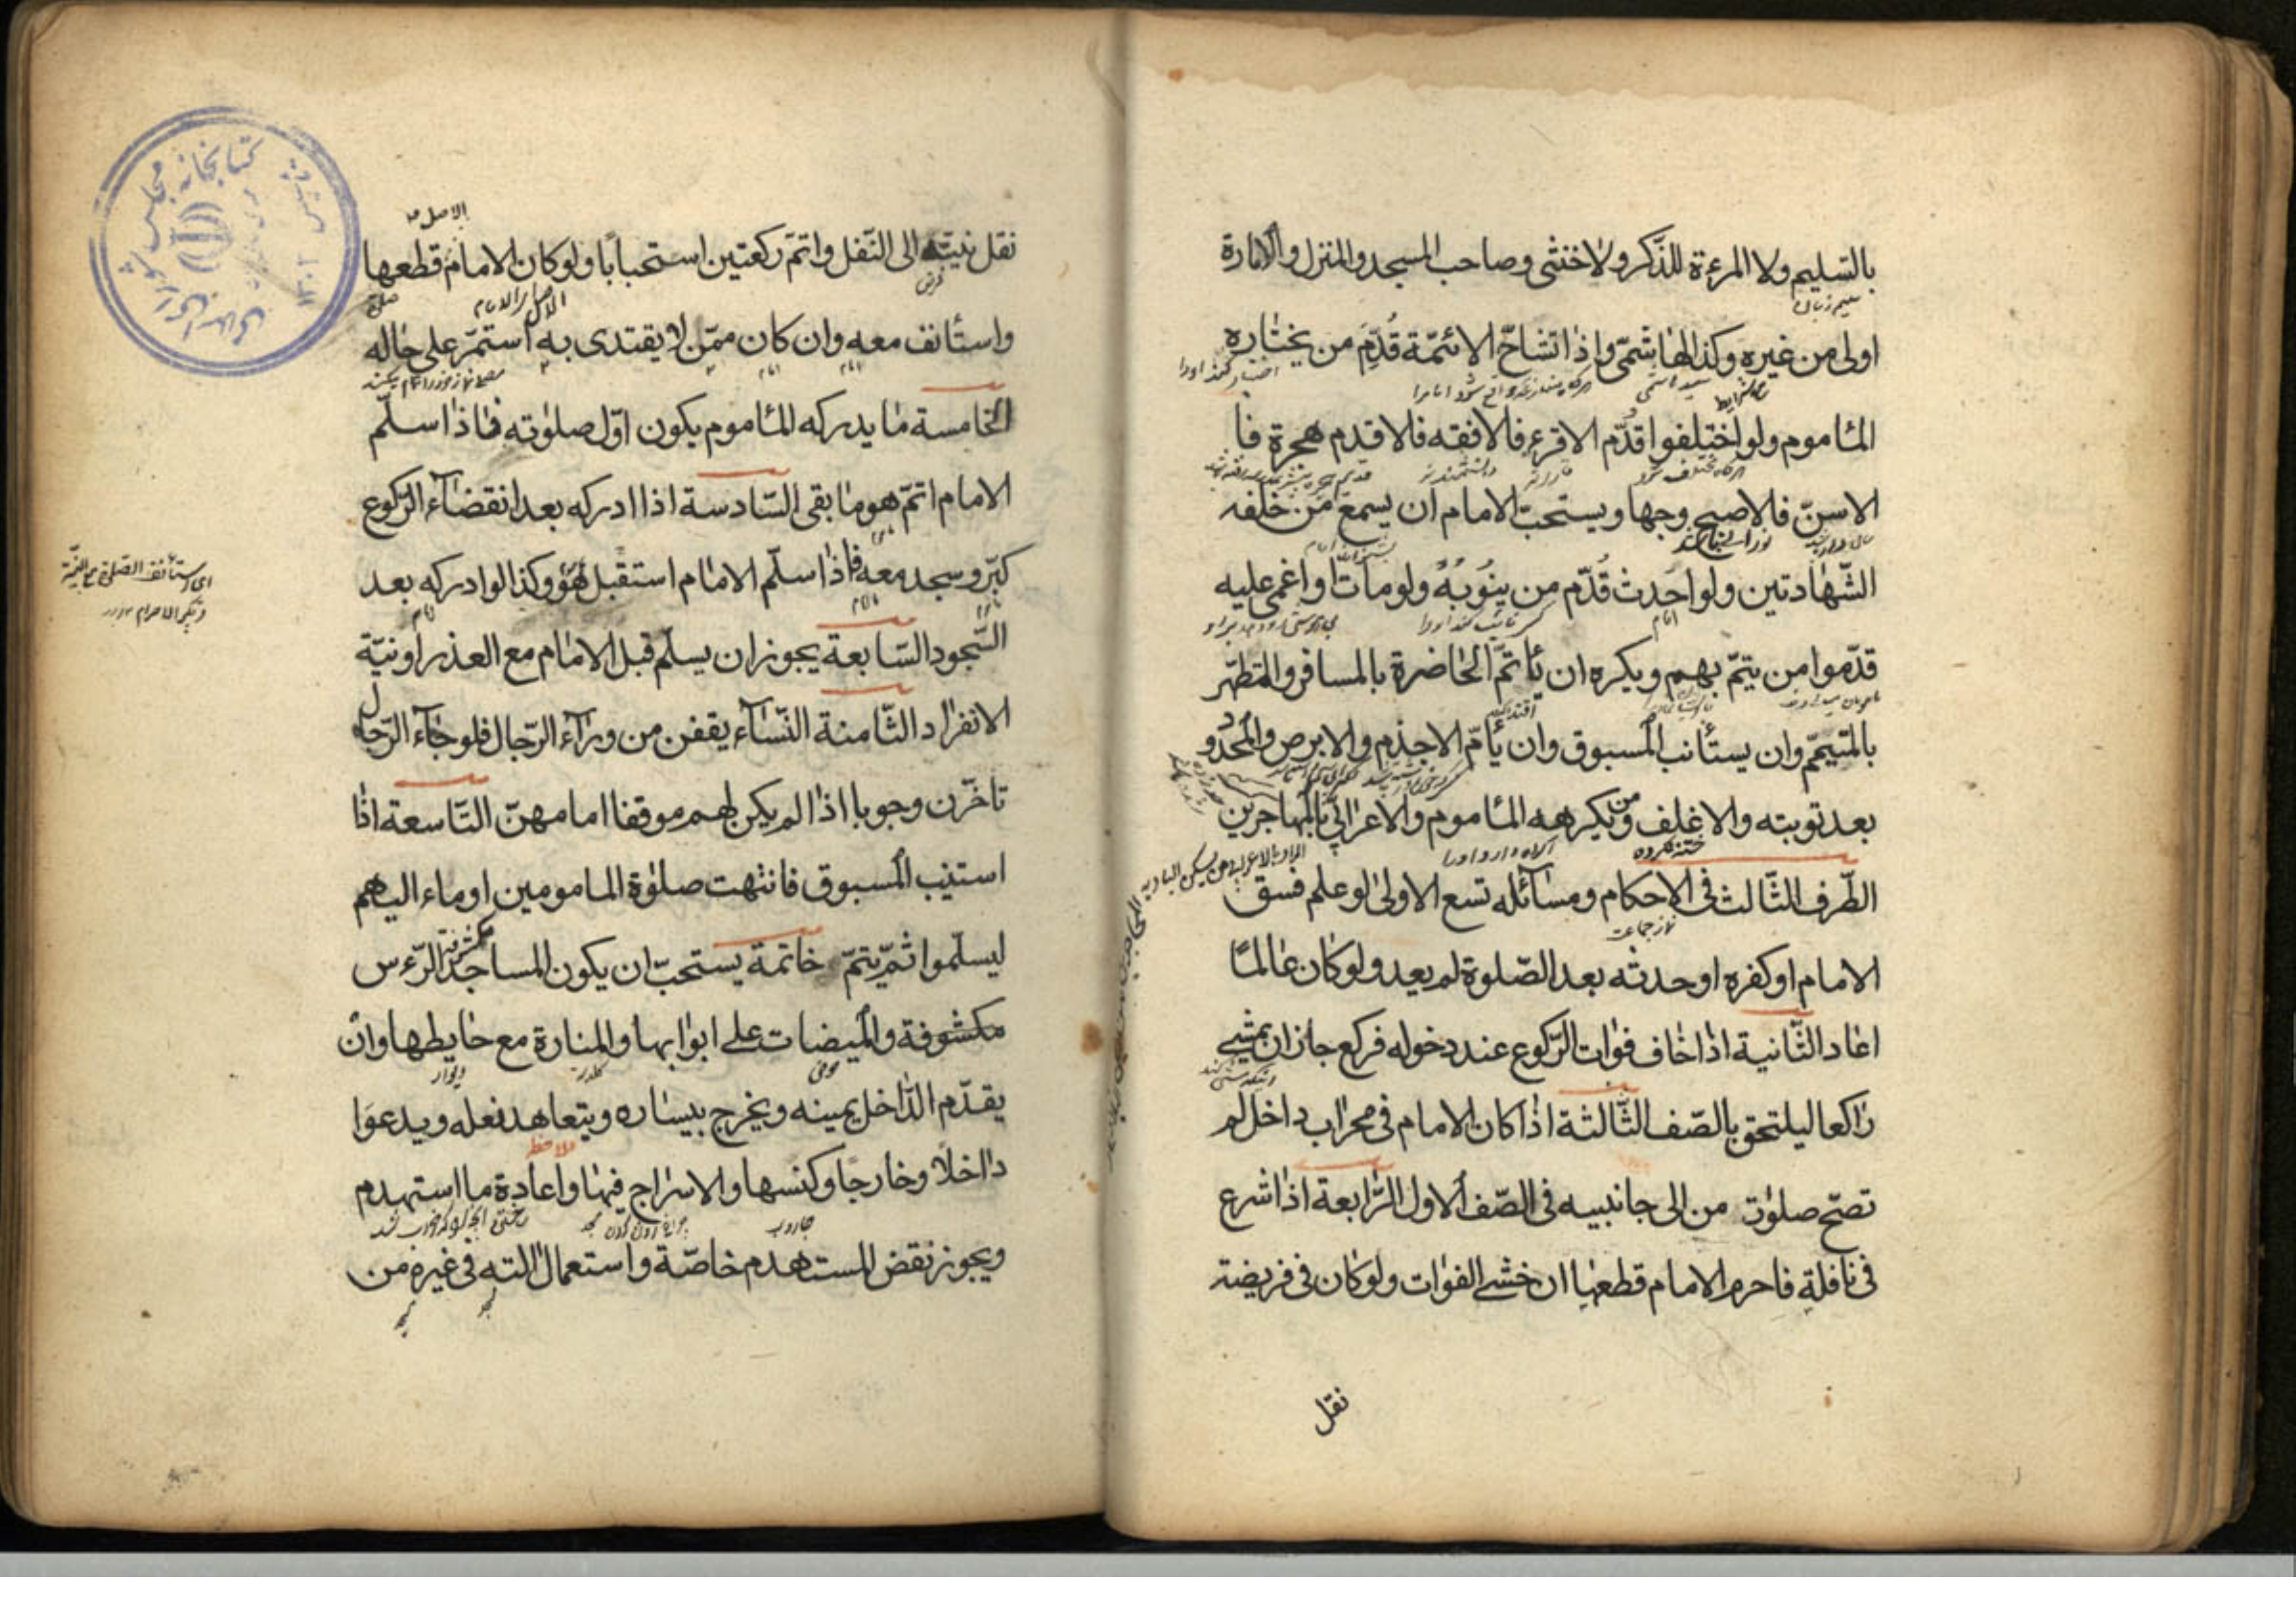 بالتسليم ولا المرءة للذّكر ولا خنثى وصاحب المسجد والمنزل والامارة
سليم زبان
اولى من غيره وكذا الهاشمّى واذا تشاحّ الائمّة قُدِّمَ من يختاره
المأموم ولو اختلفوا قُدّم الاقرء فالافقه فالاقدم هجرة فا
الاسنّ فالاصبح وجها ويستحبّ الامام ان يسمع من خلفه
الشّهادتين ولو احدث قُدّم من ينوبهُ ولو مات او اغمى عليه
امام
قدّموا من يتمّ بهم ويكره ان يأتمّ الحاضرة بالمسافر والمتطهّر
بالمتيمّم وان يستأنب المسبوق وان يأمّ الاجذم والابرص والمحدود
بعد توبته والاغلف ومن يكرهه المأموم والاعرابيّ بالمهاجرين
ختنه نكرده
اكراه دارد او را
الطّرف الثّالث فى الاحكام ومسائله تسع الاولى لو علم فسق
نماز جماعت
الامام او كفره او حدثه بعد الصّلوة لم يعد ولو كان عالمًا
اعاد الثّانية اذا خاف فوات الرّكوع عند دخوله فركع جاز ان يمشى
راكعا ليلتحق بالصّف الثّالثة اذا كان الامام فى محراب داخل لم
تصحّ صلوة من الى جانبيه فى الصّف الاول الرّابعة اذا شرع
فى نافلةٍ فاحرم الامام قطعها ان خشى الفوات ولو كان فى فريضة
نقل
الاصل
نقل نيته الى النّفل واتمّ ركعتين استحبابًا ولو كان الامام قطعها
واستأنف معه وان كان ممّن لا يقتدى به استمرّ على حاله
امام
الخامسة ما يدركه المأموم يكون اوّل صلوته فاذا سلّم
الامام اتمّ هو ما بقى السّادسة اذا ادركه بعد انقضاء الرّكوع
كبّر وسجد معه فاذا سلّم الامام استقبل هو وكذا لو ادركه بعد
امام
السّجود السّابعة يجوز ان يسلّم قبل الامام مع العذر او نيّة
الانفراد الثّامنة النّساء يقفن من وراء الرّجال فلو جاء الرّجال
تاخّرن وجوبا اذا لم يكن لهم موقفا امامهنّ التّاسعة اذا
استنيب المسبوق فانتهت صلوة المامومين اوماء اليهم
ليسلّموا ثمّ يتمّ خاتمة يستحبّ ان يكون المساجد الرّءس
مكشوفة والميضات على ابوابها والمنارة مع حايطها وان
ديوار
يقدّم الدّاخل يمينه ويخرج بيساره ويتعاهد نعله ويدعوا
ملاحظه
داخلًا وخارجًا وكنسها والاسراج فيها واعادة ما استهدم
جاروب
ويجوز نقض المستهدم خاصّة واستعمال آلته فى غيره من
اى يستأنف الصّلوة مع النيّة
وتكبير الاحرام
كتابخانه مجلس شوراى